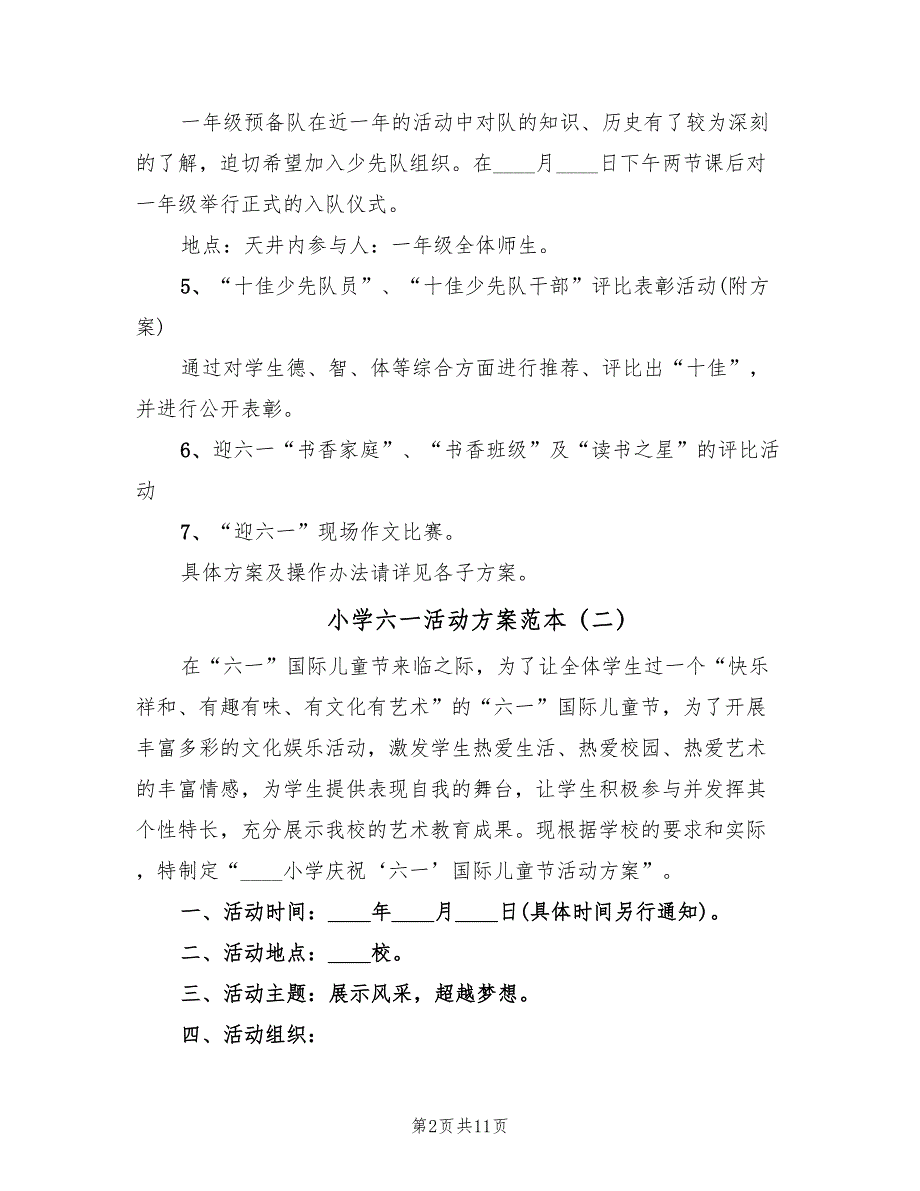 一年级预备队在近一年的活动中对队的知识、历史有了较为深刻
的了解，迫切希望加入少先队组织。在____月____日下午两节课后对
一年级举行正式的入队仪式。
地点：天井内参与人：一年级全体师生。
5、“十佳少先队员”、“十佳少先队干部”评比表彰活动(附方
案)
通过对学生德、智、体等综合方面进行推荐、评比出“十佳”，
并进行公开表彰。
6、迎六一“书香家庭”、“书香班级”及“读书之星”的评比活
动
7、“迎六一”现场作文比赛。
具体方案及操作办法请详见各子方案。
小学六一活动方案范本（二）
在“六一”国际儿童节来临之际，为了让全体学生过一个“快乐
祥和、有趣有味、有文化有艺术”的“六一”国际儿童节，为了开展
丰富多彩的文化娱乐活动，激发学生热爱生活、热爱校园、热爱艺术
的丰富情感，为学生提供表现自我的舞台，让学生积极参与并发挥其
个性特长，充分展示我校的艺术教育成果。现根据学校的要求和实际
，特制定“____小学庆祝‘六一’国际儿童节活动方案”。
一、活动时间：____年____月____日(具体时间另行通知)。
二、活动地点：____校。
三、活动主题：展示风采，超越梦想。
四、活动组织：
第2页共11页